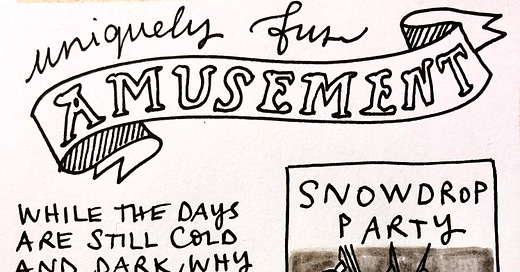 uniquely fun
AMUSEMENT
WHILE THE DAYS
ARE STILL COLD
AND DARK, WHY
SNOWDROP
PARTY